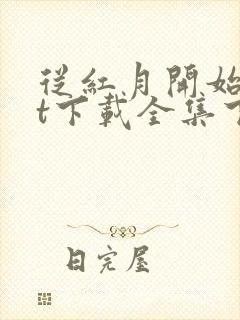 從紅月開始
t下載全集
日完屋